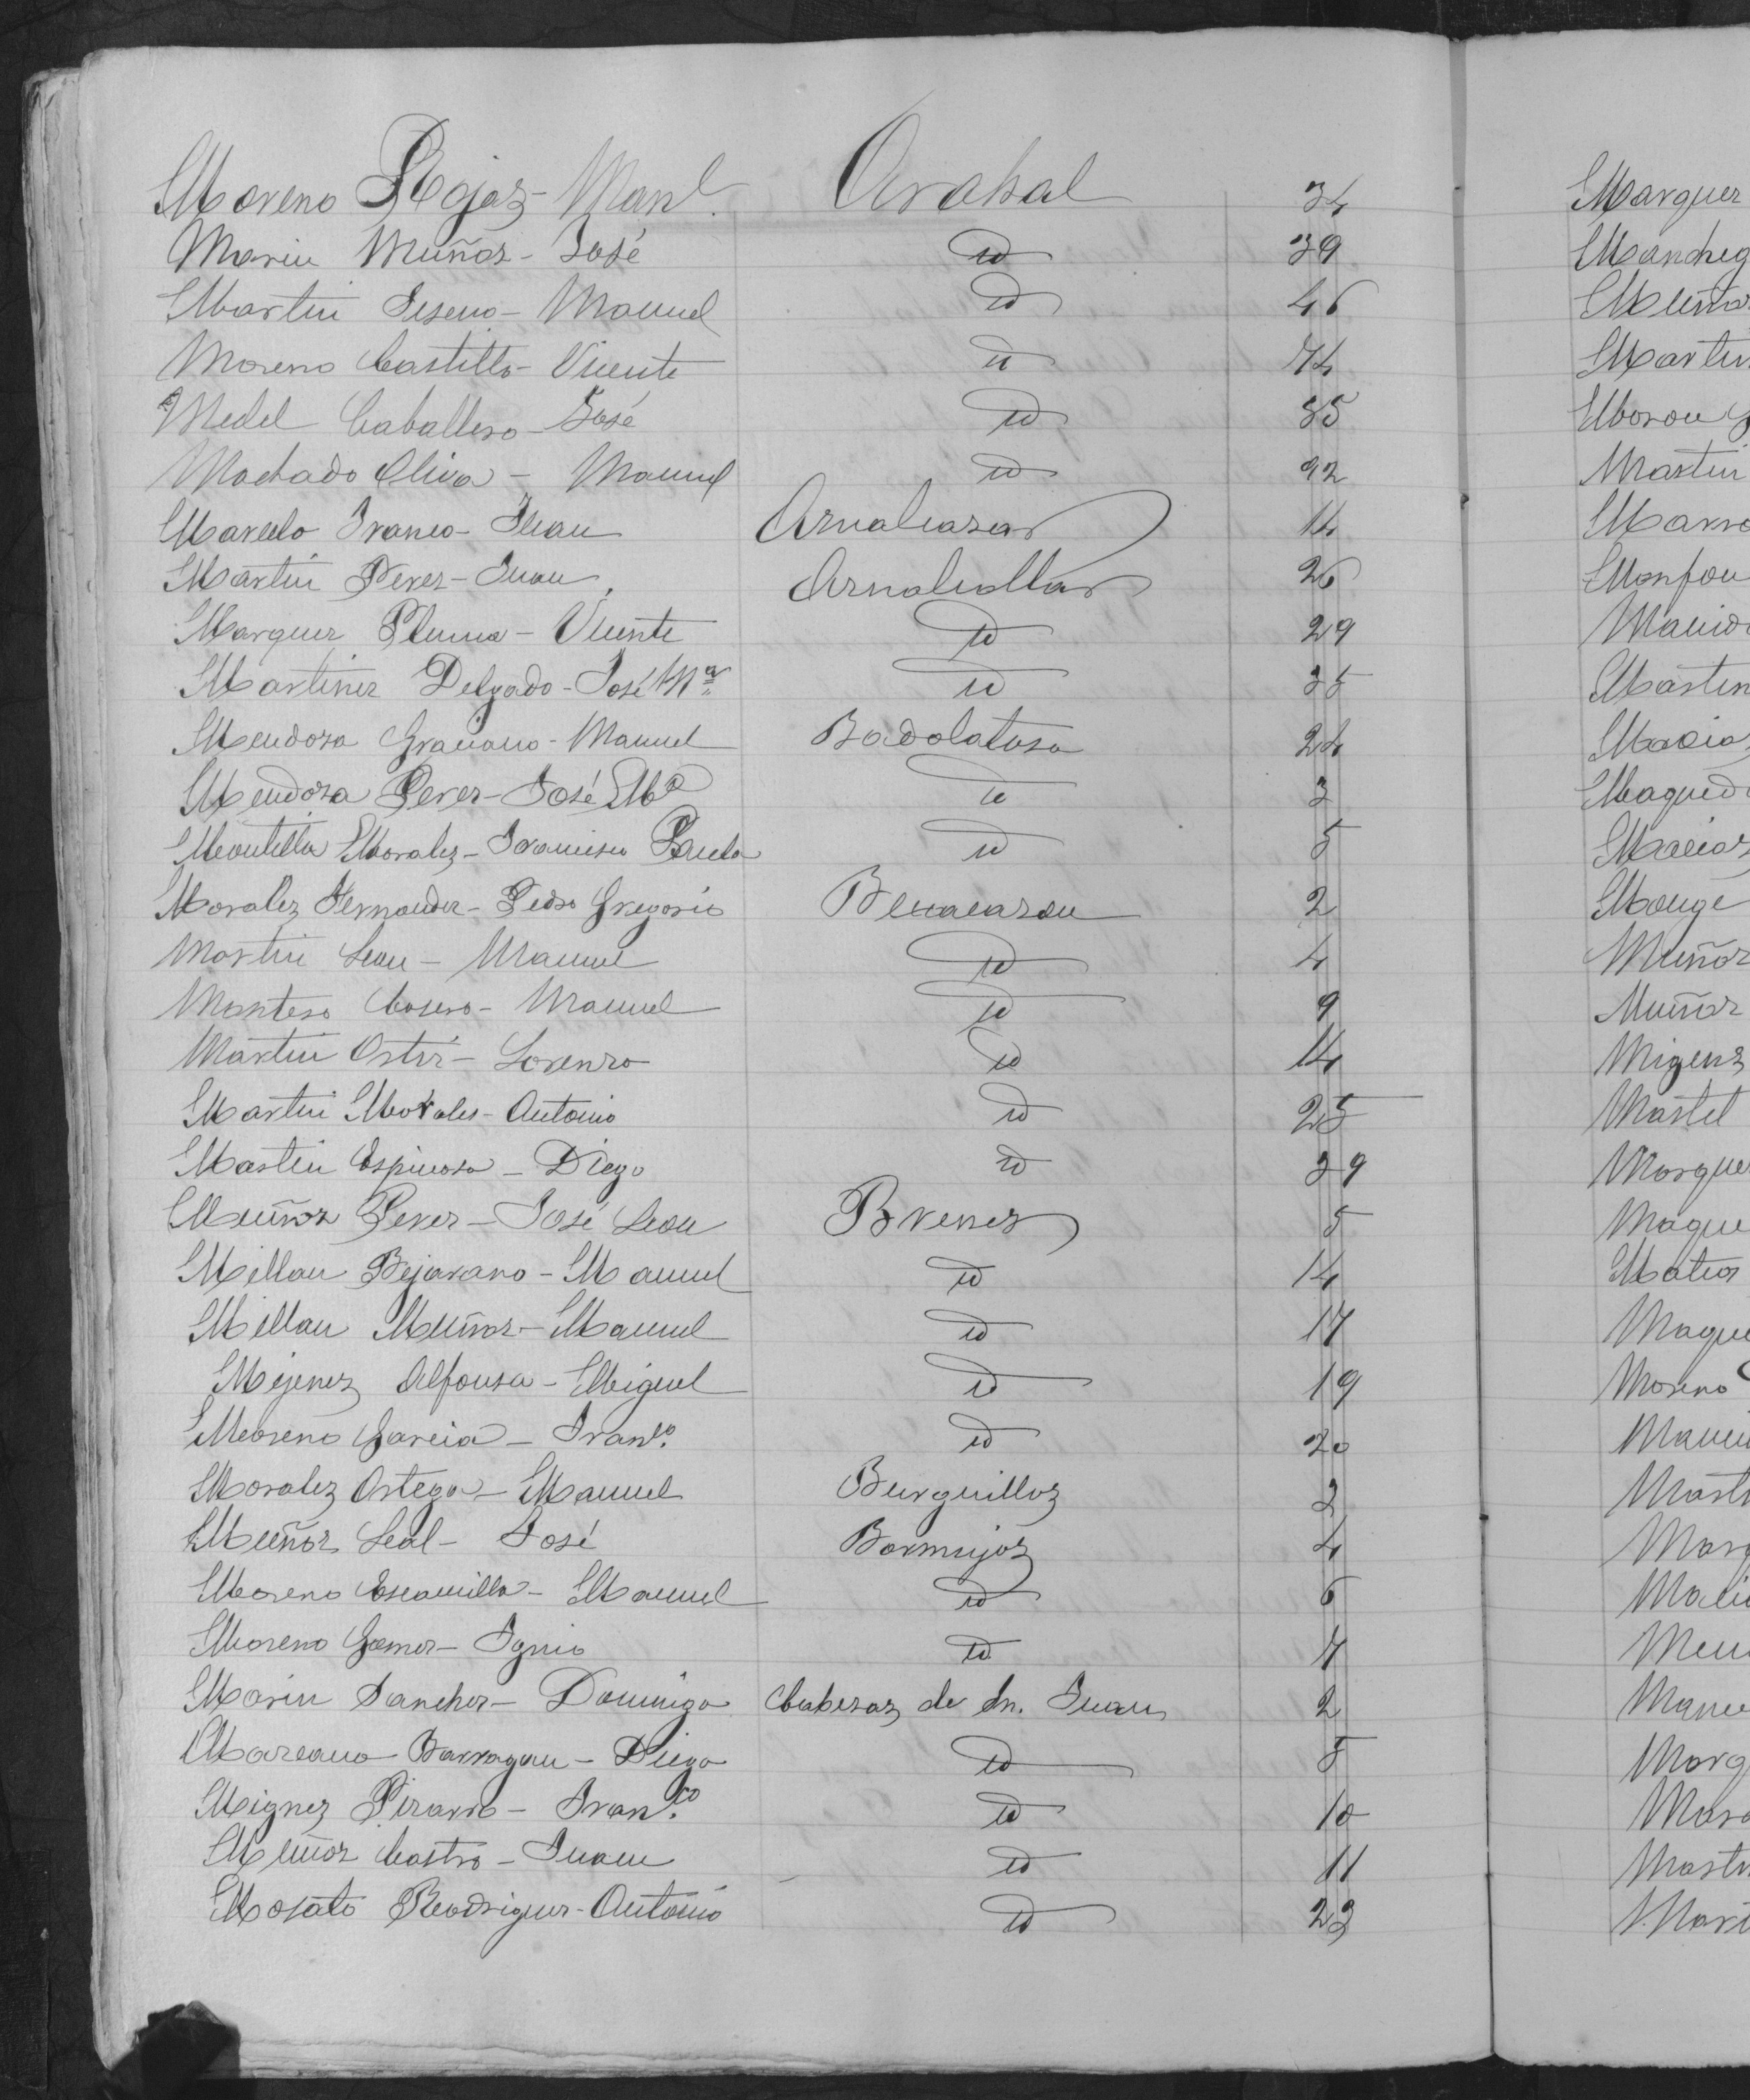 Moreno Rojas - Manl. Arahal 34
Marin Muñoz - José id 39
Martin Seseno - Manuel id 46
Moreno Castillo - Vicente id 74
Medel Caballero - José id 85
Machado Oliva - Manuel id 92
Marcelo Franco - Juan Aznalcazar 14
Martin Perez - Juan Aznalcollar 26
Marquez Pluma - Vicente id 29
Martinez Delgado - José Mª id 35
Mendoza Graciano - Manuel Badolatosa 24
Mendoza Perez - José Mª id 3
Montilla Morales - Francisco Paula id 5
Morales Fernandez - Pedro Gregorio Benacazon 2
Martin Leon - Manuel id 4
Montero Cosero - Manuel id 9
Martin Ostri - Lorenzo id 14
Martin Morales - Antonio id 25
Martin Espinosa - Diego id 39
Muñoz Perez - José Leon Brenes 5
Millan Bejarano - Manuel id 14
Millan Muñoz - Manuel id 17
Mejenez Alfonsa - Miguel id 19
Moreno Garcia - Franco. id 20
Morales Ortega - Manuel Burguillos 2
Muñoz Leal - José Bormujos 4
Moreno Escamilla - Manuel id 6
Moreno Gomez - Ignio id 7
Marin Sanchez - Domingo Cabezas de Sn. Juan 2
Marcano Barragan - Diego id 8
Mignez Pizarro - Franco. id 10
Muñoz Castro - Juan id 11
Morato Rodriguez - Antonio id 23
Marquez
Mancheg
Muñoz
Martin
Moron
Martin
Marro
Monfou
Martin
Macias
Maqued
Macias
Monge
Muñoz
Muñoz
Migens
Martel
Marque
Maque
Mateos
Maque
Moreno
Mart
Marq